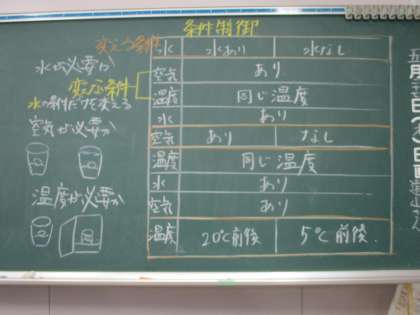 条件制御
変える条件
水が必要か
変える条件
水の条件だけを変える
空気が必要か
温度が必要か
水 水あり 水なし
空気 あり
温度 同じ温度
水 あり
空気 あり なし
温度 同じ温度
水 あり
空気 あり
温度 20℃前後 5℃前後
五月